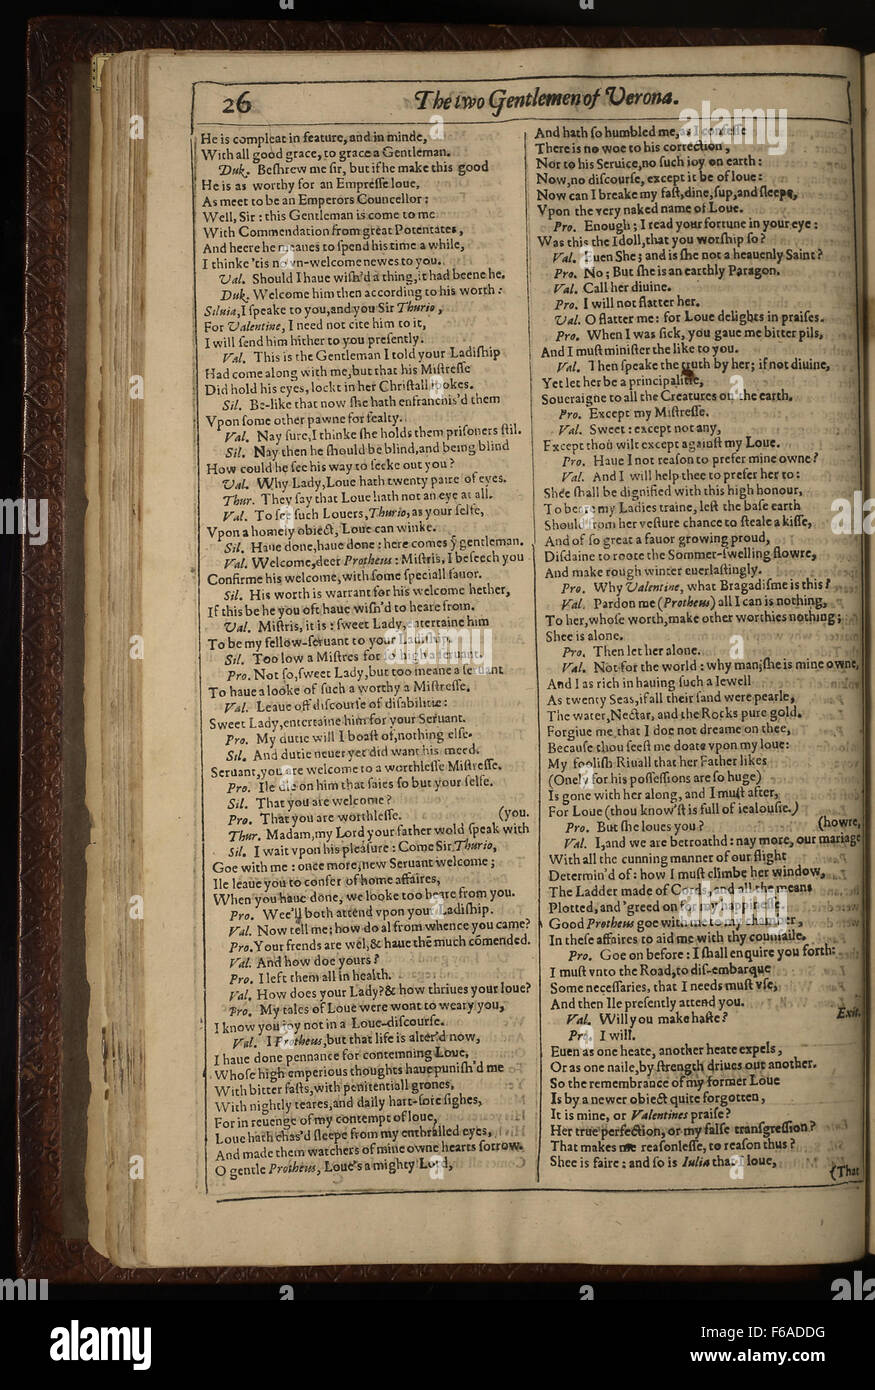 26
The two Gentlemen of Verona.
He is compleat in feature, and in minde,
With all good grace, to grace a Gentleman.
Duk. Beſhrew me ſir, but if he make this good
He is as worthy for an Empreſſe loue,
As meet to be an Emperors Councellor:
Well, Sir: this Gentleman is come to me
With Commendation from great Potentates,
And heere he meanes to ſpend his time a while,
I thinke 'tis no vn-welcome newes to you.
Val. Should I haue wiſh'd a thing, it had beene he.
Duk. Welcome him then according to his worth:
Siluia, I ſpeake to you, and you Sir Thurio,
For Valentine, I need not cite him to it,
I will ſend him hither to you preſently.
Val. This is the Gentleman I told your Ladiſhip
Had come along with me, but that his Miſtreſſe
Did hold his eyes, lockt in her Chriſtall lookes.
Sil. Be-like that now ſhe hath enfranchis'd them
Vpon ſome other pawne for fealty.
Val. Nay ſure, I thinke ſhe holds them priſoners ſtil.
Sil. Nay then he ſhould be blind, and being blind
How could he ſee his way to ſeeke out you?
Val. Why Lady, Loue hath twenty paire of eyes.
Thur. They ſay that Loue hath not an eye at all.
Val. To ſee ſuch Louers, Thurio, as your ſelfe,
Vpon a homely obiect, Loue can winke.
Sil. Haue done, haue done: here comes ẏ gentleman.
Val. Welcome, deer Protheus: Miſtris, I beſeech you
Confirme his welcome, with ſome ſpeciall fauor.
Sil. His worth is warrant for his welcome hether,
If this be he you oft haue wiſh'd to heare from.
Val. Miſtris, it is: ſweet Lady, entertaine him
To be my fellow-ſeruant to your Ladiſhip.
Sil. Too low a Miſtres for ſo high a ſeruant.
Pro. Not ſo, ſweet Lady, but too meane a ſeruant
To haue a looke of ſuch a worthy a Miſtreſſe.
Val. Leaue off diſcourſe of diſabilitie:
Sweet Lady, entertaine him for your Seruant.
Pro. My dutie will I boaſt of, nothing elſe.
Sil. And dutie neuer yet did want his meed.
Seruant, you are welcome to a worthleſſe Miſtreſſe.
Pro. Ile die on him that ſaies ſo but your ſelfe.
Sil. That you are welcome?
Pro. That you are worthleſſe. (you.
Thur. Madam, my Lord your father wold ſpeak with
Sil. I wait vpon his pleaſure: Come Sir Thurio,
Goe with me: once more, new Seruant welcome;
Ile leaue you to confer of home affaires,
When you haue done, we looke too heare from you.
Pro. Wee'll both attend vpon your Ladiſhip.
Val. Now tell me: how do al from whence you came?
Pro. Your frends are wel, & haue thē much comended.
Val. And how doe yours?
Pro. I left them all in health.
Val. How does your Lady? & how thriues your loue?
Pro. My tales of Loue were wont to weary you,
I know you ioy not in a Loue-diſcourſe.
Val. I Protheus, but that life is alter'd now,
I haue done pennance for contemning Loue,
Whoſe high emperious thoughts haue puniſh'd me
With bitter faſts, with penitentiall grones,
With nightly teares, and daily hart-ſore ſighes,
For in reuenge of my contempt of loue,
Loue hath chas'd ſleepe from my enthralled eyes,
And made them watchers of mine owne hearts ſorrow.
O gentle Protheus, Loue's a mighty Lord,
And hath ſo humbled me, as I confeſſe
There is no woe to his correction,
Nor to his Seruice, no ſuch ioy on earth:
Now, no diſcourſe, except it be of loue:
Now can I breake my faſt, dine, ſup, and ſleepe,
Vpon the very naked name of Loue.
Pro. Enough; I read your fortune in your eye:
Was this the Idoll, that you worſhip ſo?
Val. Euen She; and is ſhe not a heauenly Saint?
Pro. No; But ſhe is an earthly Paragon.
Val. Call her diuine.
Pro. I will not flatter her.
Val. O flatter me: for Loue delights in praiſes.
Pro. When I was ſick, you gaue me bitter pils,
And I muſt miniſter the like to you.
Val. Then ſpeake the truth by her; if not diuine,
Yet let her be a principalitie,
Soueraigne to all the Creatures on the earth.
Pro. Except my Miſtreſſe.
Val. Sweet: except not any,
Except thou wilt except againſt my Loue.
Pro. Haue I not reaſon to prefer mine owne?
Val. And I will help thee to prefer her to:
Shee ſhall be dignified with this high honour,
To beare my Ladies traine, leſt the baſe earth
Should from her veſture chance to ſteale a kiſſe,
And of ſo great a fauor growing proud,
Diſdaine to roote the Sommer-ſwelling flowre,
And make rough winter euerlaſtingly.
Pro. Why Valentine, what Bragadiſme is this?
Val. Pardon me (Protheus) all I can is nothing,
To her, whoſe worth, make other worthies nothing;
Shee is alone.
Pro. Then let her alone.
Val. Not for the world: why man, ſhe is mine owne,
And I as rich in hauing ſuch a Iewell
As twenty Seas, if all their ſand were pearle,
The water, Nectar, and the Rocks pure gold.
Forgiue me, that I doe not dreame on thee,
Becauſe thou ſeeſt me doate vpon my loue:
My fooliſh Riuall that her Father likes
(Onely for his poſſeſſions are ſo huge)
Is gone with her along, and I muſt after,
For Loue (thou know'ſt is full of iealouſie.)
Pro. But ſhe loues you? (howre,
Val. I, and we are betroathd: nay more, our mariage
With all the cunning manner of our flight
Determin'd of: how I muſt climbe her window,
The Ladder made of Cords, and all the means
Plotted, and 'greed on for my happineſſe.
Good Protheus goe with me to my chamber,
In theſe affaires to aid me with thy counſaile.
Pro. Goe on before: I ſhall enquire you forth:
I muſt vnto the Road, to diſ-embarque
Some neceſſaries, that I needs muſt vſe,
And then Ile preſently attend you.
Val. Will you make haſte? Exit.
Pro. I will.
Euen as one heate, another heate expels,
Or as one naile, by ſtrength driues out another.
So the remembrance of my former Loue
Is by a newer obiect quite forgotten,
It is mine, or Valentines praiſe?
Her true perfection, or my falſe tranſgreſſion?
That makes me reaſonleſſe, to reaſon thus?
Shee is faire: and ſo is Iulia that I loue,
(That
alamy stock photo
F6ADDG
www.alamy.com